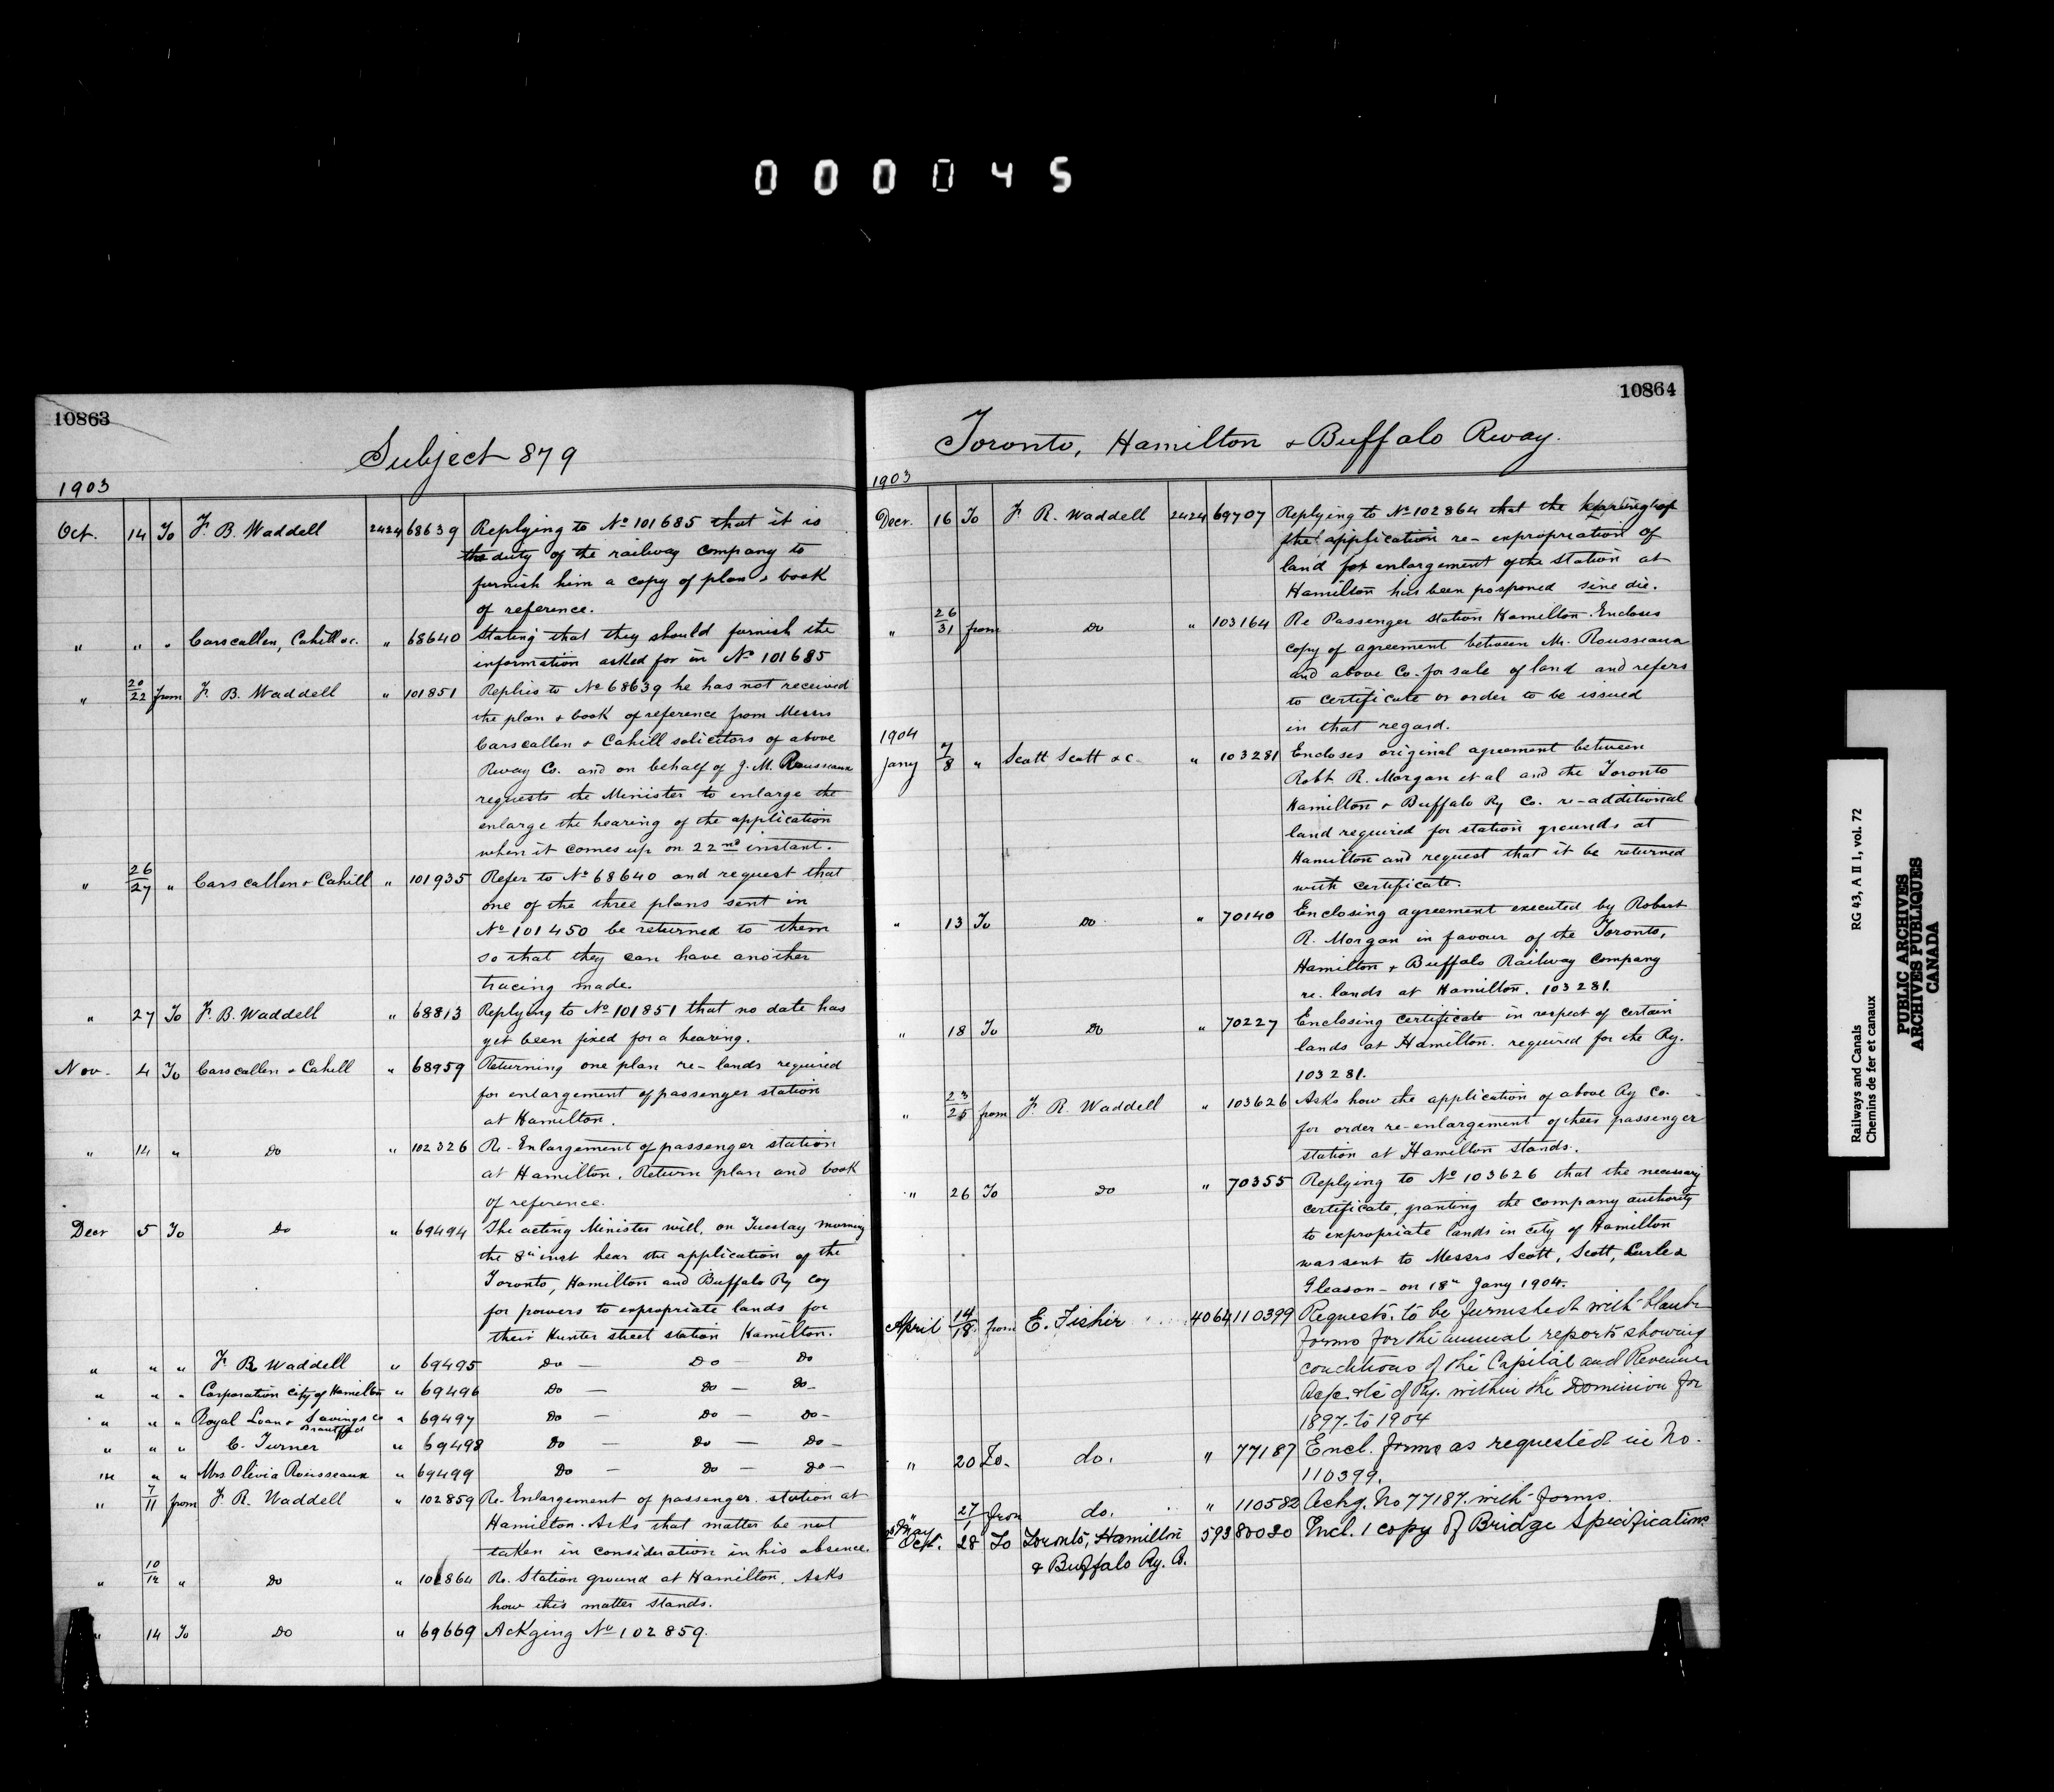 000045
10863
Subject 879
1903
Oct. 14 To F. B. Waddell 2424 68639 Replying to No 101685 that it is
the duty of the railway company to
furnish him a copy of plan & book
of reference.
" " " Carscallen, Cahill &c. " 68640 Stating that they should furnish the
information asked for in No 101685
" 20/22 from F. B. Waddell " 101851 Replies to No 68639 he has not received
the plan & book of reference from Messrs
Carscallen & Cahill solicitors of above
Rway Co. and on behalf of J. M. Rousseaux
requests the Minister to enlarge the
enlarge the hearing of the application
when it comes up on 22nd instant.
" 26/27 " Carscallen & Cahill " 101935 Refer to No 68640 and request that
one of the three plans sent in
No 101450 be returned to them
so that they can have another
tracing made.
" 27 To F. B. Waddell " 68813 Replying to No 101851 that no date has
yet been fixed for a hearing.
Nov. 4 To Carscallen & Cahill " 68959 Returning one plan re- lands required
for enlargement of passenger station
at Hamilton.
" 14 " Do " 102326 Re- Enlargement of passenger station
at Hamilton. Return plan and book
of reference.
Decr 5 To Do " 69494 The acting Minister will, on Tuesday morning
the 8th inst hear the application of the
Toronto, Hamilton and Buffalo Ry Coy
for powers to expropriate lands for
their Hunter street station Hamilton.
" " " F. R. Waddell " 69495 Do — Do — Do
" " " Corporation City of Hamilton " 69496 Do — Do — Do-
" " " Royal Loan & Savings Co " 69497 Do — Do — Do-
Brantford
" " " C. Turner " 69498 Do — Do — Do-
" " " Mrs Olivia Rousseaux " 69499 Do — Do — Do —
" 7/11 from F. R. Waddell " 102859 Re. Enlargement of passenger station at
Hamilton. Asks that matter be not
taken in consideration in his absence.
" 10/12 " Do " 102864 Re. Station ground at Hamilton. Asks
how this matter stands.
" 14 To Do " 69669 Ackging No 102859.
10864
Toronto, Hamilton & Buffalo Rway.
1903
Decr. 16 To F. R. Waddell 2424 69707 Replying to No 102864 that the hearing of
the application re- expropriation of
land for enlargement of the station at
Hamilton has been posponed sine die.
" 26/31 from Do " 103164 Re Passenger station Hamilton. Encloses
copy of agreement between Mr. Rousseaux
and above Co. for sale of land and refers
to certificate or order to be issued
in that regard.
1904
Jany 7/8 " Scott Scott &c " 103281 Encloses original agreement between
Robt R. Morgan et al and the Toronto
Hamilton & Buffalo Ry Co. re-additional
land required for station grounds at
Hamilton and request that it be returned
with certificate.
" 13 To Do " 70140 Enclosing agreement executed by Robert
R. Morgan in favour of the Toronto,
Hamilton & Buffalo Railway Company
re. lands at Hamilton. 103281.
" 18 To Do " 70227 Enclosing certificate in respect of certain
lands at Hamilton. required for the Ry.
103281.
" 23/25 from F. R. Waddell " 103626 Asks how the application of above Ry Co.
for order re-enlargement of their passenger
station at Hamilton stands.
" 26 To Do " 70355 Replying to No 103626 that the necessary
certificate, granting the company authority
to expropriate lands in city of Hamilton
was sent to Messrs Scott, Scott, Curle &
Gleason - on 18th Jany 1904.
April 14/18 from E. Fisher 4064 110399 Requests to be furnished with blank
forms for the annual reports showing
conditions of the Capital and Revenue
Accs. &c of Ry. within the Dominion for
1897- to 1904
" 20 To- do. " 77187 Encl. forms as requested in No.
110399.
" 27/1 from do. " 110582 Ackg. No 77187. with forms.
May
Oct. 28 To Toronto, Hamilton 593 80020 Encl. 1 copy of Bridge Specifications
& Buffalo Ry. Co.
Railways and Canals RG 43, A II 1, vol. 72
Chemins de fer et canaux
PUBLIC ARCHIVES
ARCHIVES PUBLIQUES
CANADA